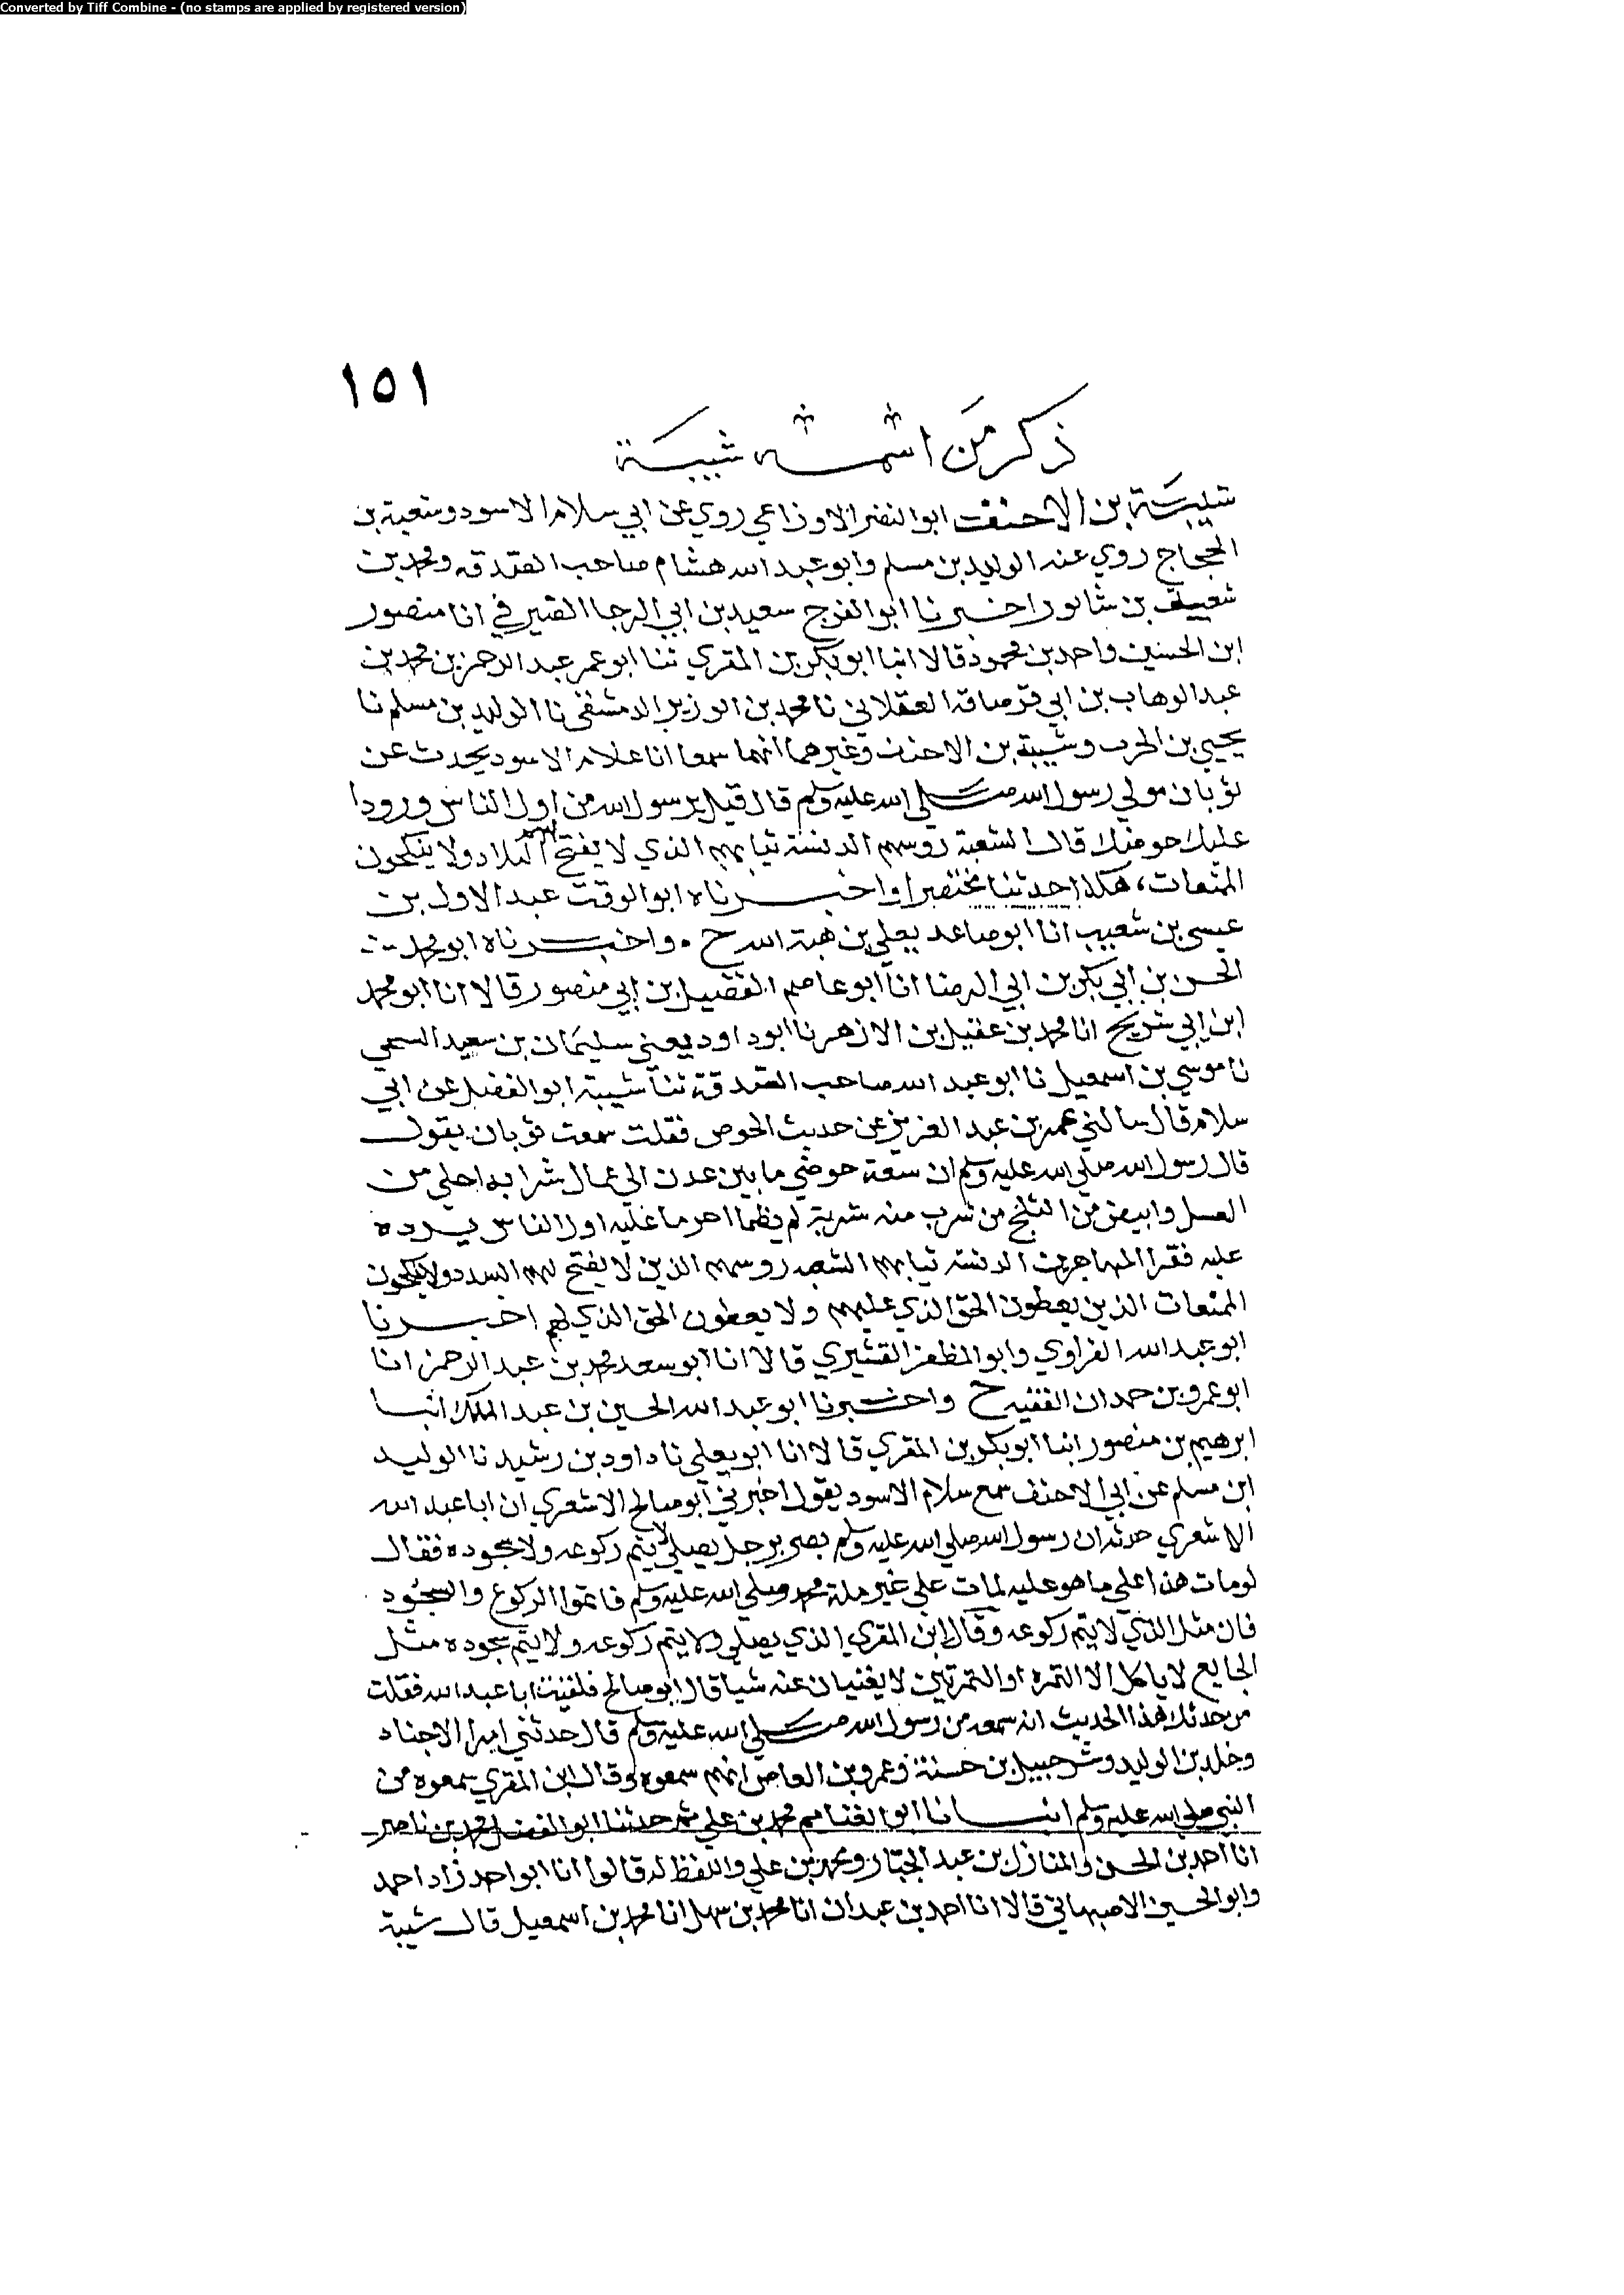 Converted by Tiff Combine - (no stamps are applied by registered version)
١٥١
ذكر من اسمه شيبة
شيبة بن الاحنف ابو النضر الاوزاعي روي عن ابي سلام الاسود وشعبة بن
الحجاج روي عنه الوليد بن مسلم وابو عبد الله هشام صاحب الصدقه ومحمد بن
شعيب بن شابور اخبرنا ابو الفرج سعيد بن ابي الرجا الصيرفي انا منصور
ابن الحسين واحمد بن محمود قالا انبا ابو بكر بن المقري ثنا ابو عمر عبد الرحمن بن محمد بن
عبد الوهاب بن ابي قرصافة العقلاني نا محمد بن الوزير الدمشقي نا الوليد بن مسلم نا
يحيي بن الحرب وشيبة بن الاحنف وغيرهما انهما سمعا اباسلام الاسود يحدث عن
ثوبان مولي رسول الله صلي الله عليه وسلم قال قيل يرسول الله من اول الناس ورودا
عليك حوضك قال الشعثة روسهم الدنسة ثيابهم الذي لا يفتح لهم السدد ولا ينكحون
المنعمات، هكذا حدثنا مختصرا واخبرناه ابو الوقت عبد الاول بن
عيسى بن شعيب انا ابو صاعد يعلي بن هبة الله ح ٠ واخبرناه ابو محمد
الحسن بن ابي بكر بن ابي الرضا انا ابو عاصم الفضيل بن ابي منصور قالا انا ابو محمد
ابن ابي شريح انا محمد بن عقيل بن الازهر نا ابو داود يعني سليمان بن سعيد السجي
نا موسي بن اسمعيل نا ابو عبد الله صاحب الصدقة ثنا شيبة ابو الفضل عن ابي
سلام قال سالني عمر بن عبد العزيز عن حديث الحوض فقلت سمعت ثوبان يقول
قال رسول الله صلي الله عليه وسلم ان سعة حوضي ما بين عدن الي عمال شرابه احلي من
العسل وابيض من الثلج من شرب منه شربة لم يظما اخر ما عليه اول الناس يرده
عليه فقرا المهاجرين الدنسة ثيابهم الشعثه روسهم الذين لا يفتح لهم السدد ولا ينكحون
المنعمات الذين يعطون الحق الذي عليهم ولا يعطون الحق الذي لهم اخبرنا
ابو عبد الله الفراوي وابو المظفر القشيري قالا انا ابو سعد محمد بن عبد الرحمن انا
ابو عمرو بن حمدان الفقيه ح واخبرنا ابو عبد الله الحسين بن عبد الملك انبا
ابرهيم بن منصور انبا ابو بكر بن المقري قالا انا ابو يعلي نا داود بن رشيد نا الوليد
ابن مسلم عن ابي الاحنف سمع سلام الاسود يقول اخبرني ابو صالح الاشعري ان ابا عبد الله
الاشعري حدثه ان رسول الله صلي الله عليه وسلم بصر برجل يصلي لا يتم ركوعه ولا سجوده فقال
لو مات هذا علي ما هو عليه لمات علي غير ملة محمد صلي الله عليه وسلم فاتموا الركوع والسجود
فان مثل الذي لا يتم ركوعه وقال ابن المقري الذي يصلي ولا يتم ركوعه ولا يتم سجوده مثل
الجايع لا ياكل الا التمره او التمرتين لا يغنيان عنه شيا قال ابو صالح فلقيت ابا عبد الله فقلت
من حدثك بهذا الحديث انه سمعه من رسول الله صلي الله عليه وسلم قال حدثني امرا الاجناد
وخلد بن الوليد وشرحبيل بن حسنة وعمرو بن العاص انهم سمعوه وقال ابن المقري سمعوه من
النبي صلي الله عليه وسلم انبانا ابو الغنايم محمد بن علي ثم حدثنا ابو الفضل محمد بن ناصر
انا احمد بن الحسن والمنازل بن عبد الجبار ومحمد بن علي واللفظ له قالوا انا ابو احمد زاد احمد
وابو الحسين الاصبهاني قالا انا احمد بن عبدان انا محمد بن سهل انا محمد بن اسمعيل قال شيبة